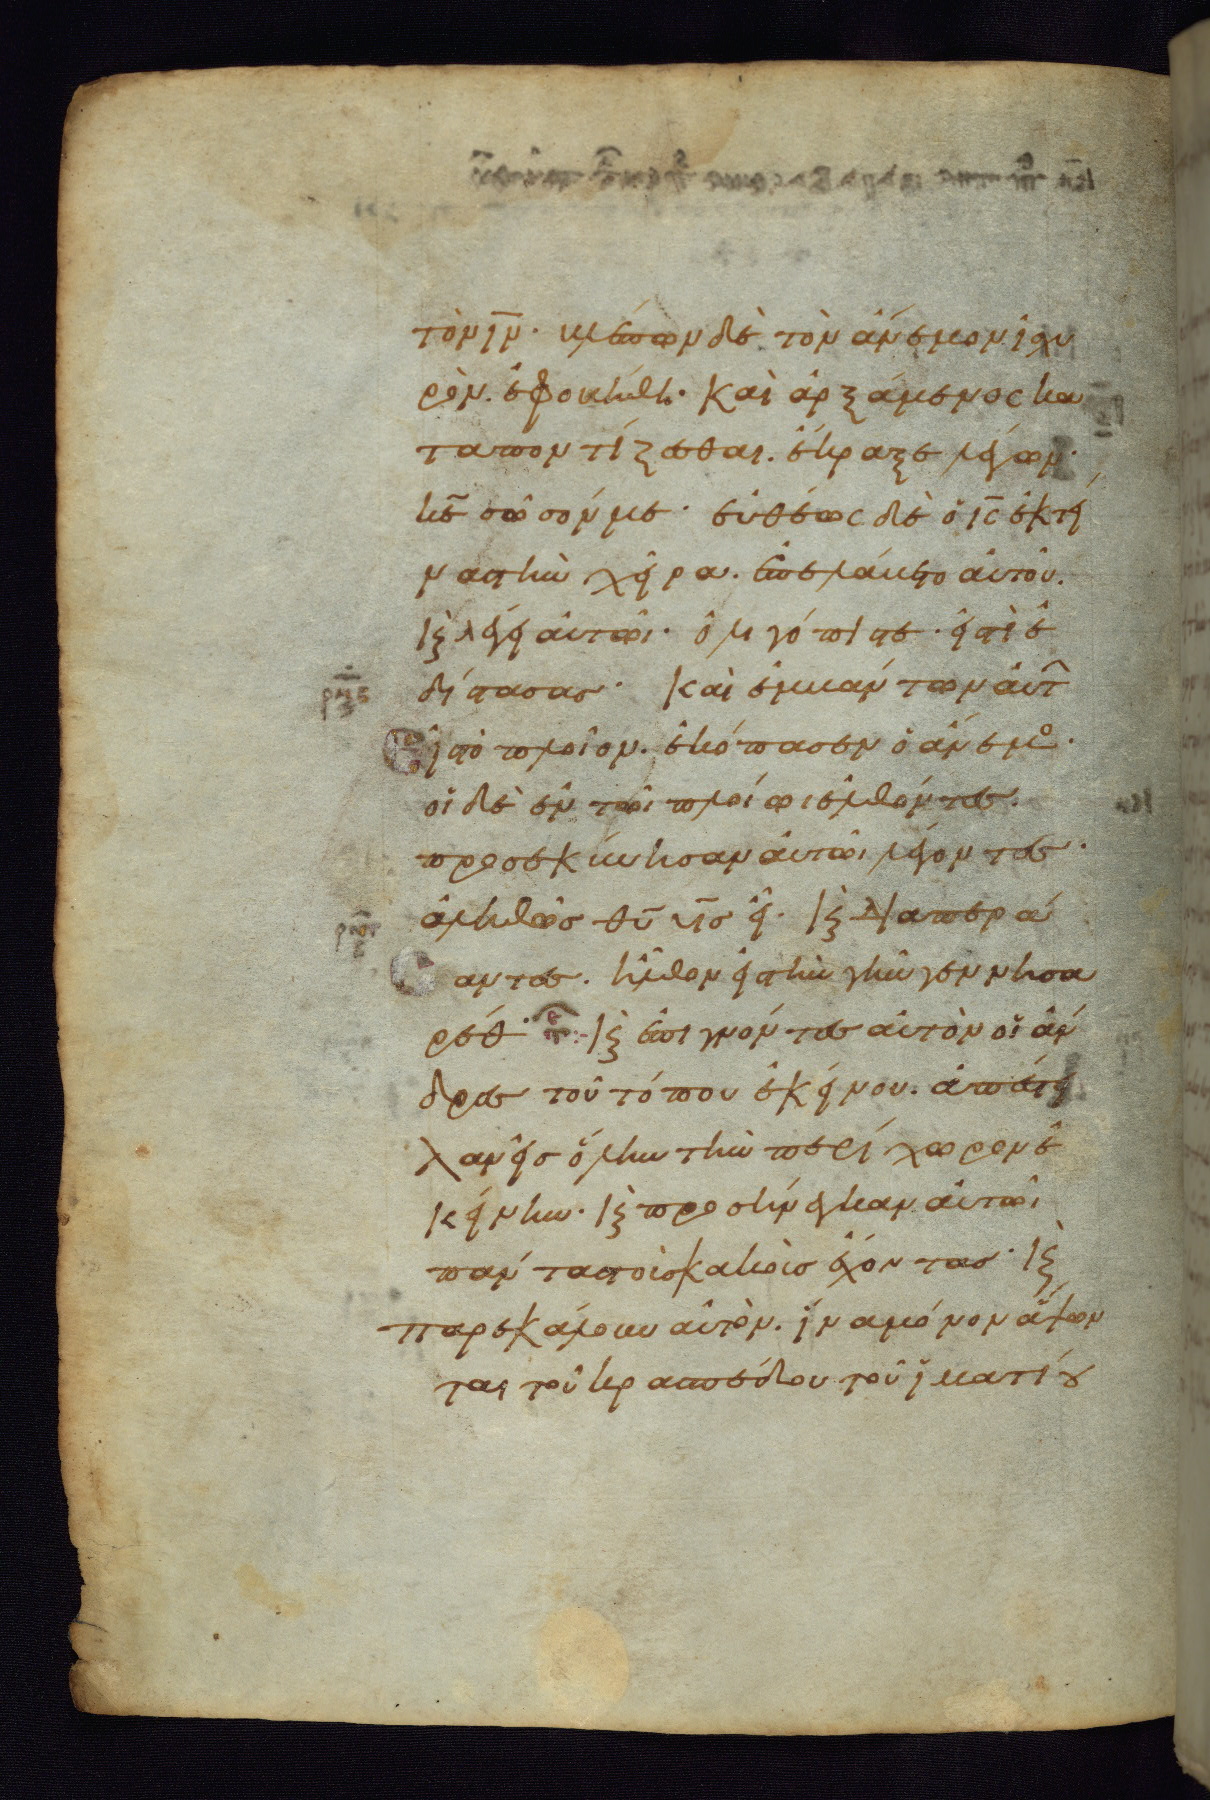 τὸν ιν̄. βλέπων δὲ τὸν ἄνεμον ἰσχυ
ρὸν. ἐφοβήθη. καὶ ἀρξάμενος κα
ταποντίζεσθαι. ἔκραξε λέγων.
κε̄ σῶσόν με. εὐθέως δὲ ὁ ις̄ ἐκτεί
νας τὴν χεῖρα. ἐπελάβετο αὐτοῦ.
κ̀ λέγει αὐτῶι. ὀλιγόπιστε. εἰς τί ἐ
δίστασας. καὶ ἐμβάντων αὐτ
εἰς τὸ πλοῖον. ἐκόπασεν ὁ ἄνεμο.
οἱ δὲ ἐν τῶι πλοίωι ἐλθόντες.
προσεκύνησαν αὐτῶι λέγοντες.
ἀληθῶς θῡ υς̄ εἶ. κ̀ διαπερά
σαντες. ἦλθον εἰς τὴν γῆν γεννησα
ρέθ. κ̀ ἐπιγνόντες αὐτὸν οἱ ἄν
δρες τοῦ τόπου ἐκείνου. ἀπέστει
λαν εἰς ὅλην τὴν περίχωρον ἐ
κείνην. κ̀ προσήνεγκαν αὐτῶι
πάντας τοὺς κακῶς ἔχοντας. κ̀
παρεκάλουν αὐτὸν. ἵνα μόνον ἅψων
ται τοῦ κρασπέδου τοῦ ἱματίου